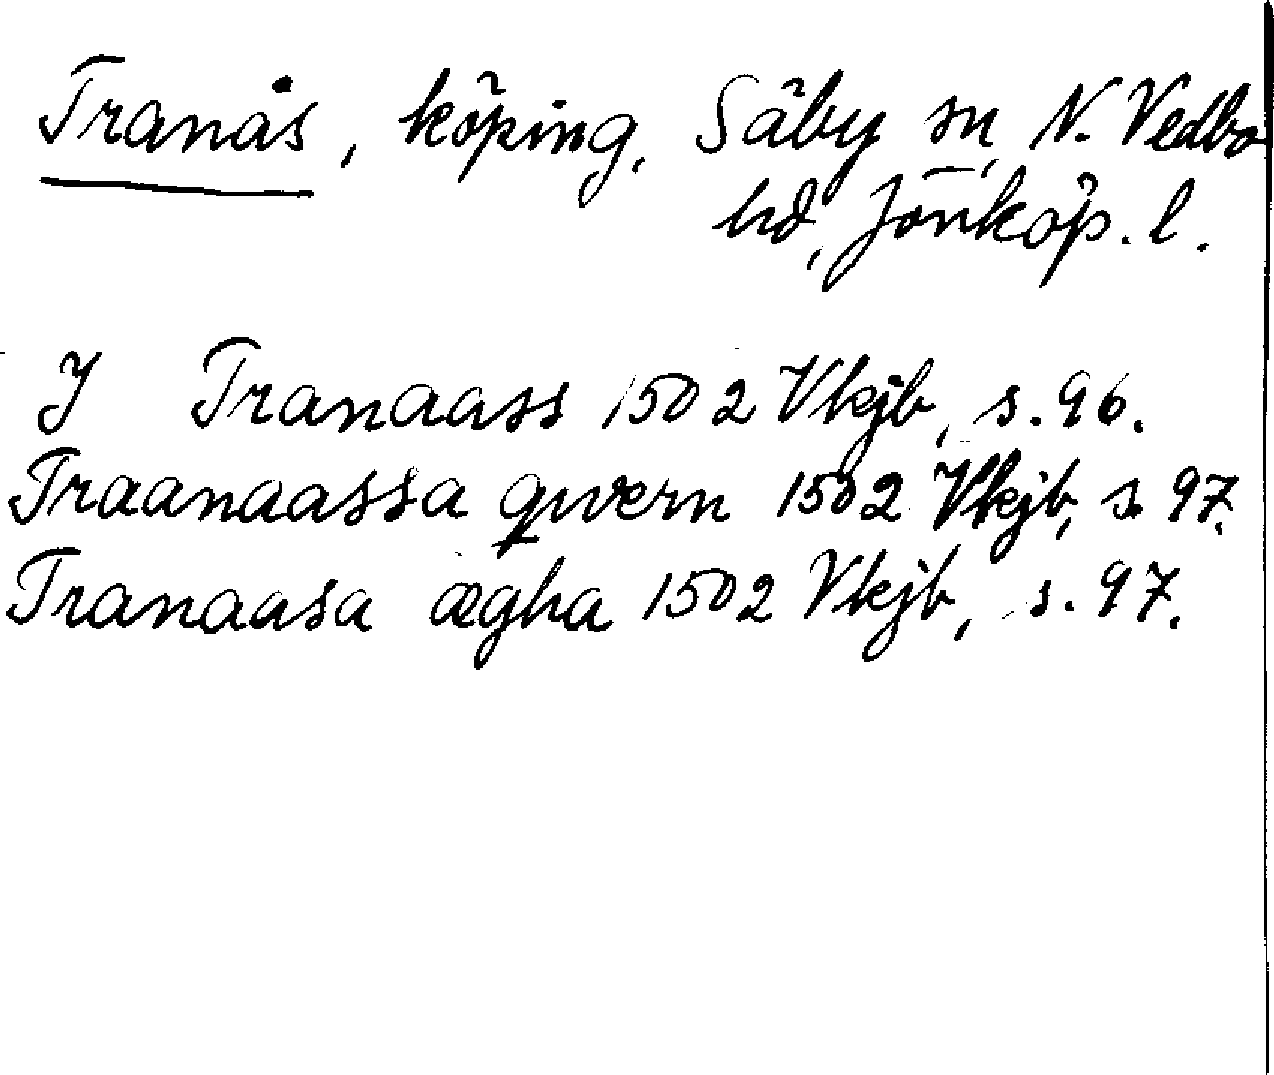 Tranås, köping, Säby sn, N. Vedbo
hd, Jönköp. l.
J Tranaass 1502 Vkjb, s. 96.
Traanaassa qwern 1502 Vkjb, s. 97.
Tranaasa ægha 1502 Vkjb, s. 97.